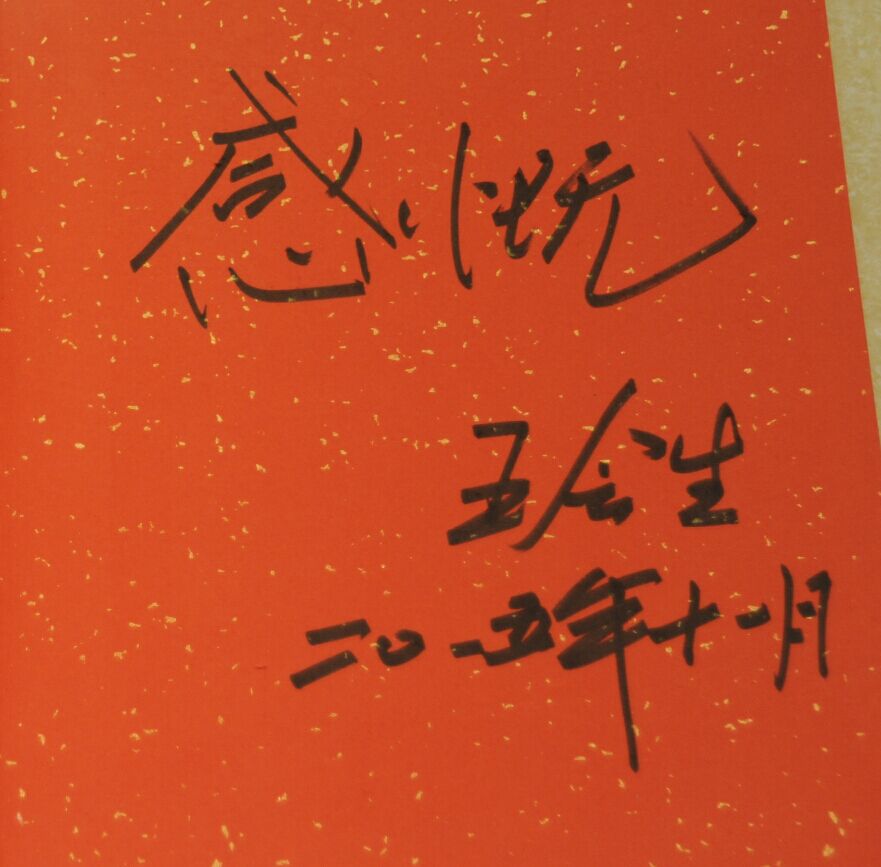 感慨
王会生
二〇一五年十一月